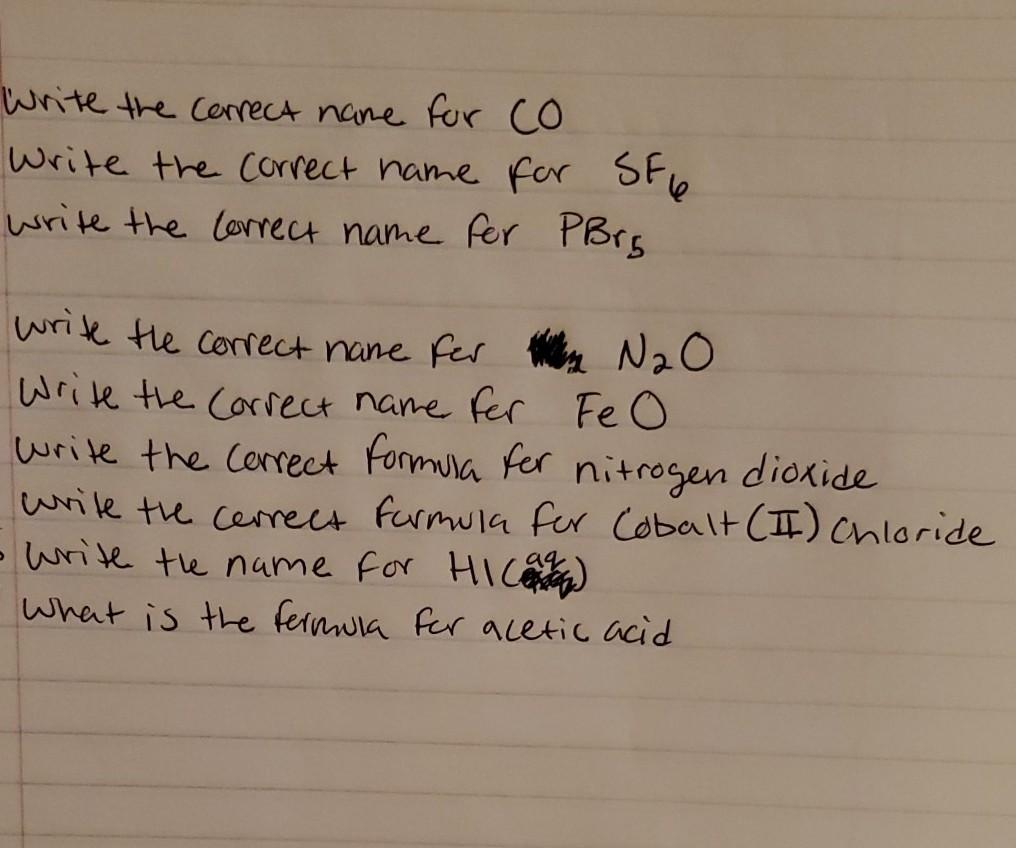 Write the correct name for CO
Write the correct name for SF6
write the correct name for PBr5
write the correct name for N2O
Write the correct name for FeO
write the correct formula for nitrogen dioxide
write the correct formula for Cobalt (II) Chloride
write the name for HI(aq)
What is the formula for acetic acid